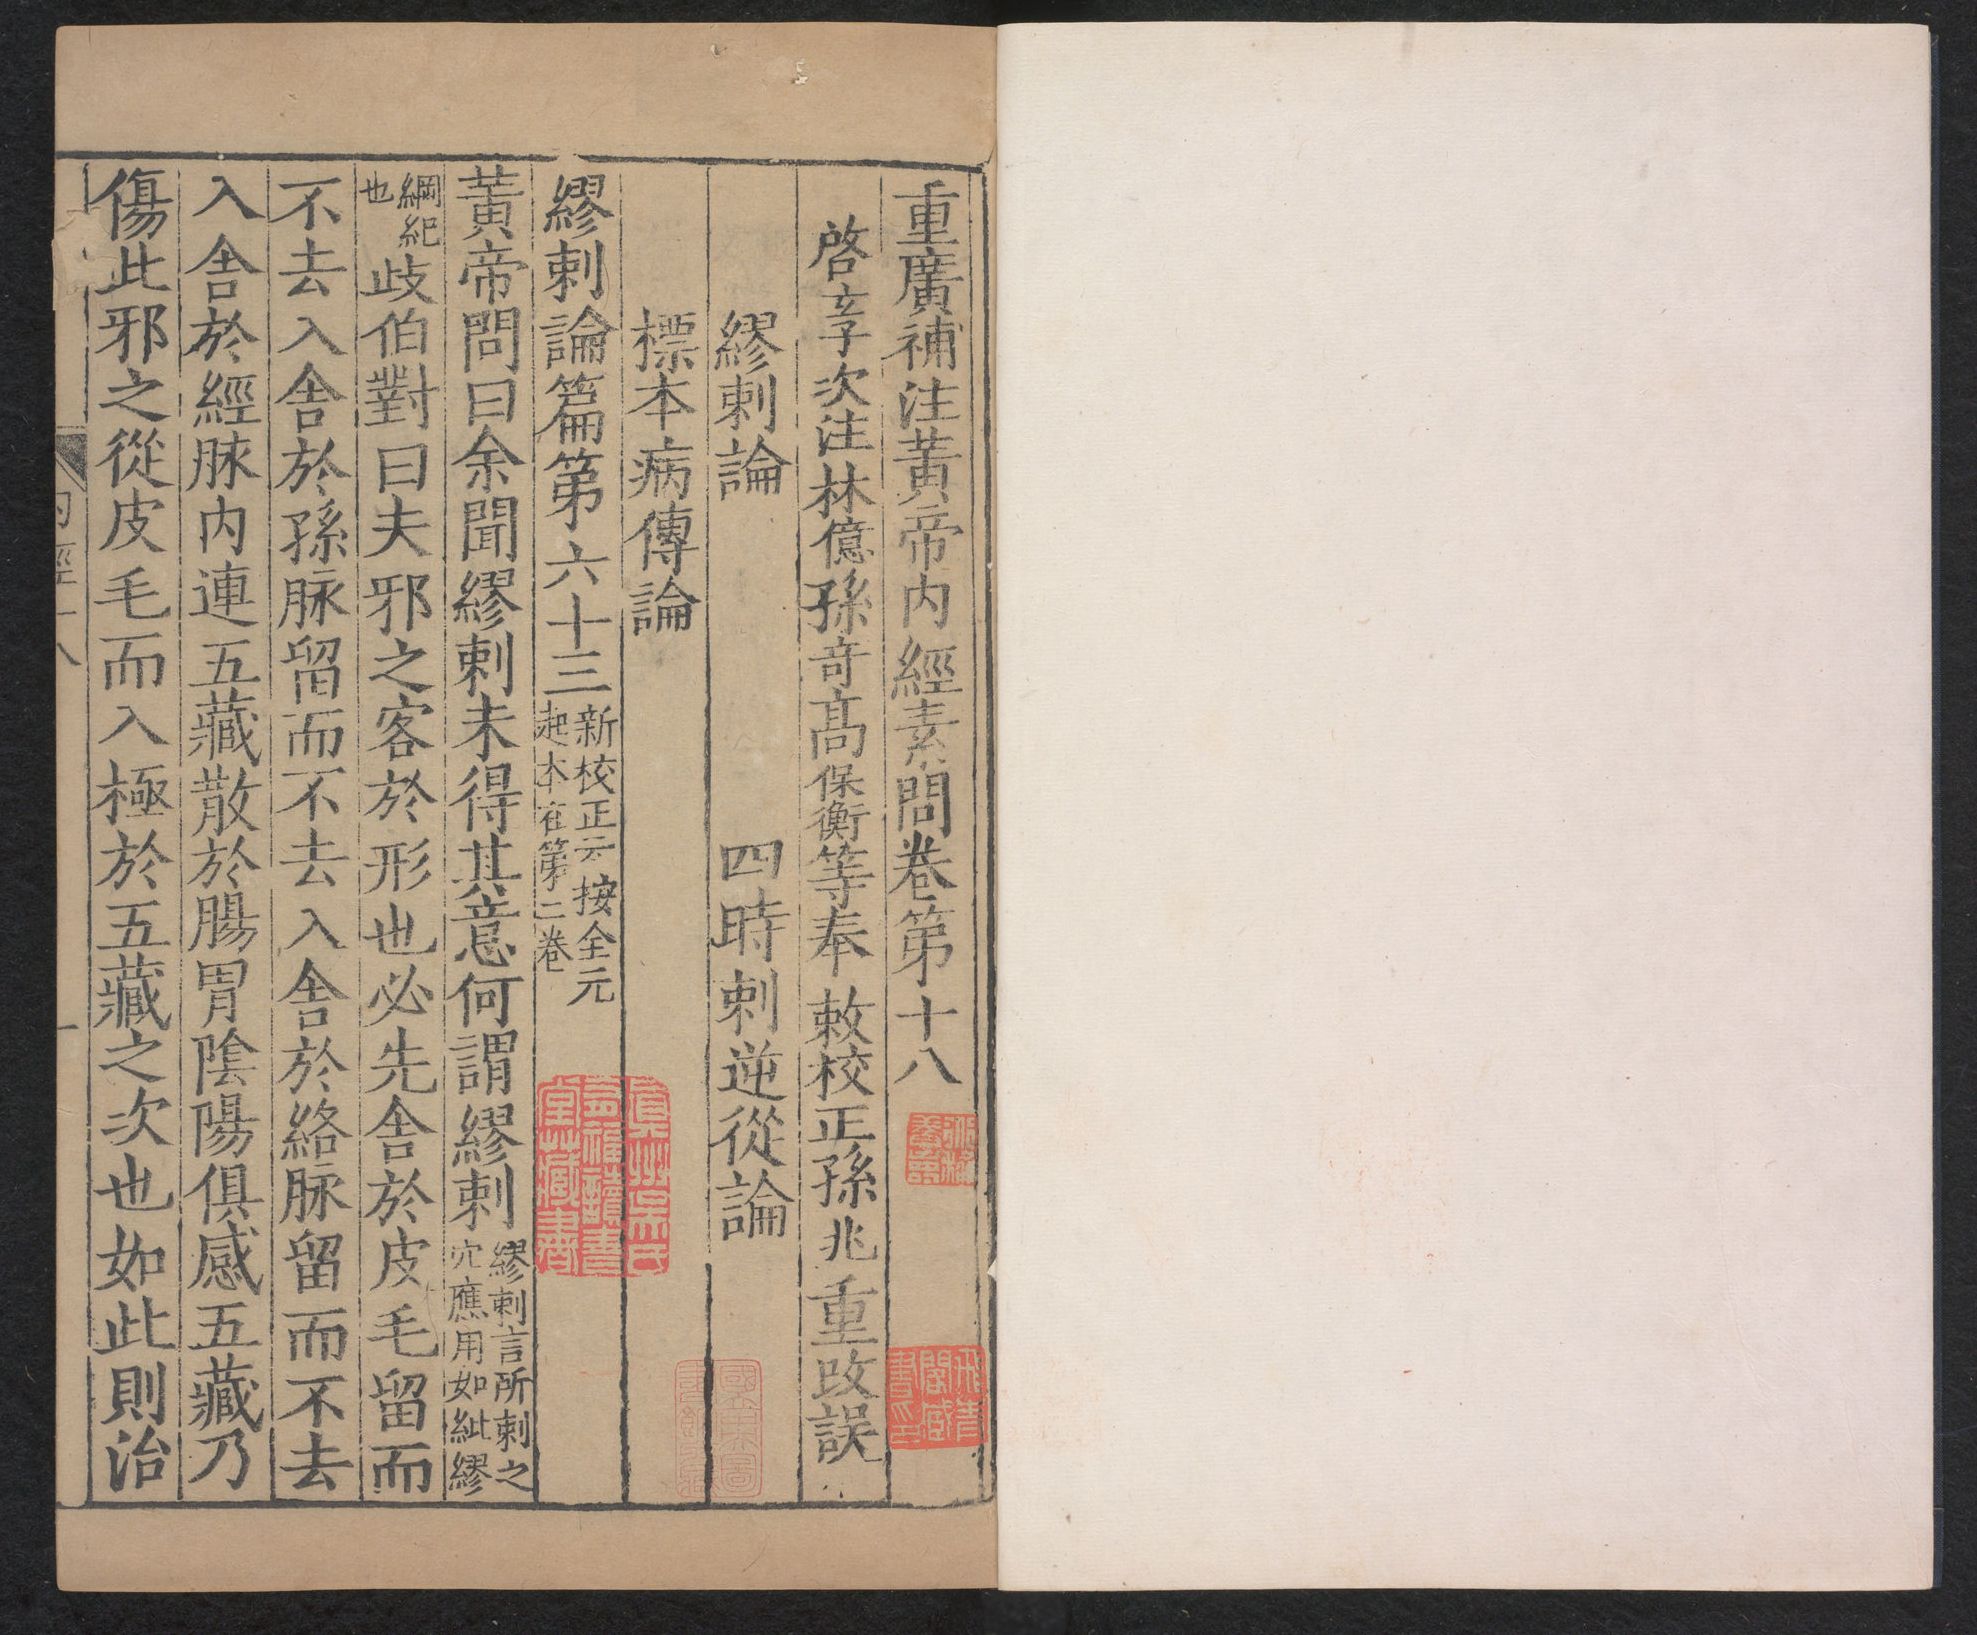 重廣補注黃帝内經素問卷第十八
啓玄子次注林億孫竒髙保衡等奉敕校正孫兆重改誤
繆刺論 四時刺逆從論
標本病傳論
繆刺論篇第六十三 新校正云按全元
起本在第二卷
黃帝問曰余聞繆刺未得其意何謂繆刺 繆刺言所刺之
穴應用如紕繆
綱紀
也 歧伯對曰夫邪之客於形也必先舍於皮毛留而
不去入舍於孫脉留而不去入舍於絡脉留而不去
入舍於經脉内連五藏散於腸胃陰陽俱感五藏乃
傷此邪之從皮毛而入極於五藏之次也如此則治
内經十八
一
真州吳氏
有福讀書
堂藏書
飛青
閣藏
書印